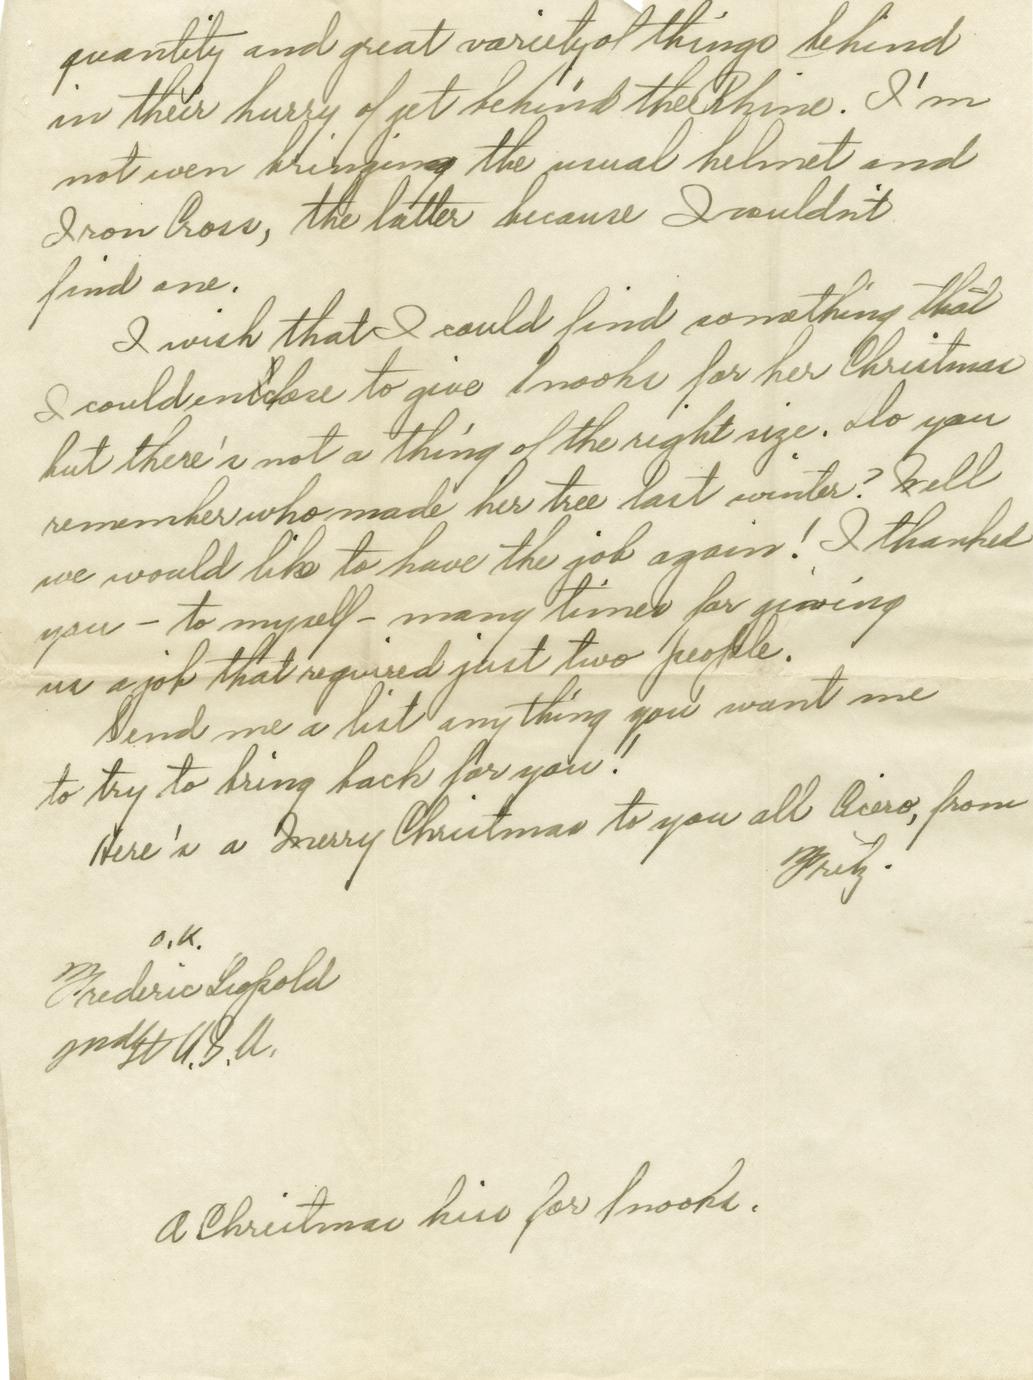 quantity and great variety of things behind
in their hurry of get behind the Rhine. I'm
not even bringing the usual helmet and
Iron Cross, the latter because I couldn't
find one.
I wish that I could find something that
I could enclose to give Snooks for her Christmas
but there's not a thing of the right size. Do you
remember who made her tree last winter? Well
we would like to have the job again! I thanked
you - to myself - many times for giving
us a job that required just two people.
Send me a list anything you want me
to try to bring back for you!!
Here's a Merry Christmas to you all Cicero, from
Fritz.
O.K.
Frederic Leopold
2nd Lt A.S.A.
A Christmas kiss for Snooks.